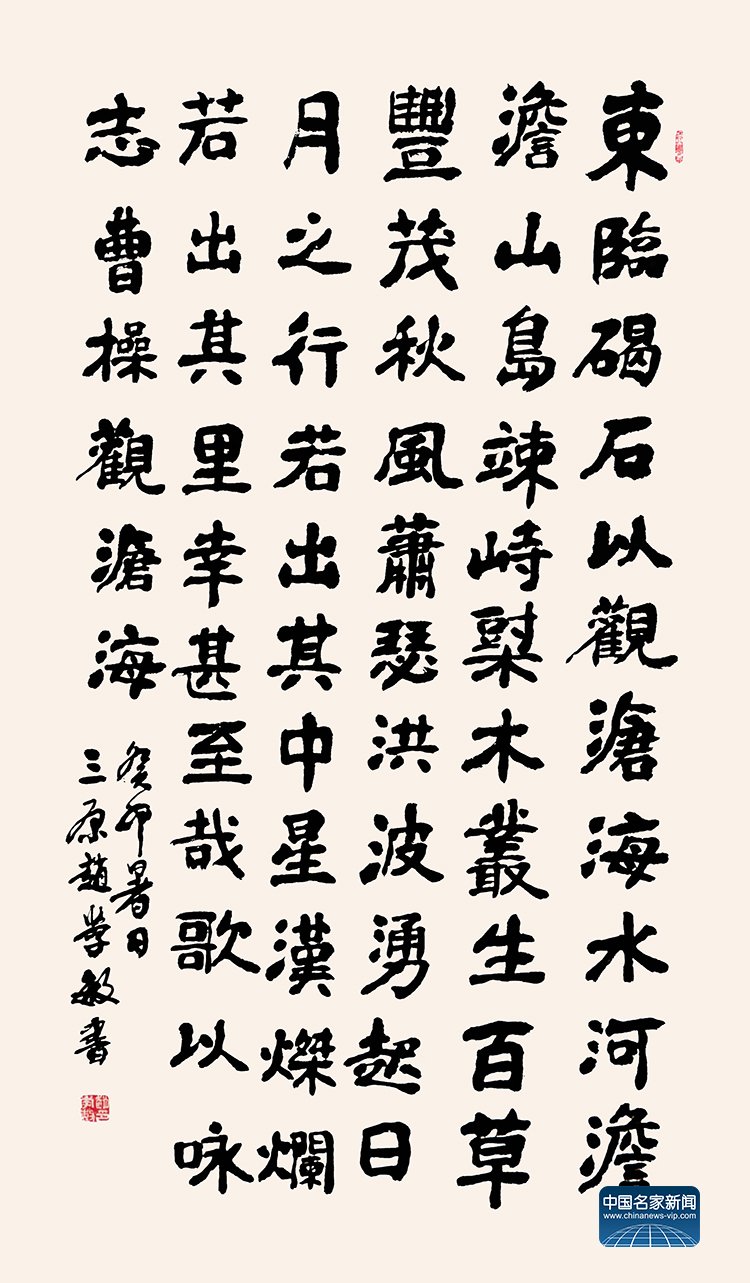 東臨碣石以觀滄海水河澹
澹山島竦峙樹木叢生百草
豐茂秋風蕭瑟洪波湧起日
月之行若出其中星漢燦爛
若出其里幸甚至哉歌以咏
志曹操觀滄海
癸卯暑日
三原趙學敏書
中国名家新闻
www.chinanews-vip.com